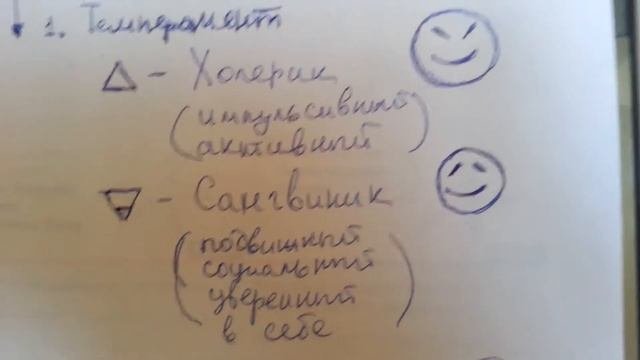 1. Темперамент
- Холерик
(импульсивный
активный)
- Сангвиник
(подвишный
социальный
уверенный
в себе)